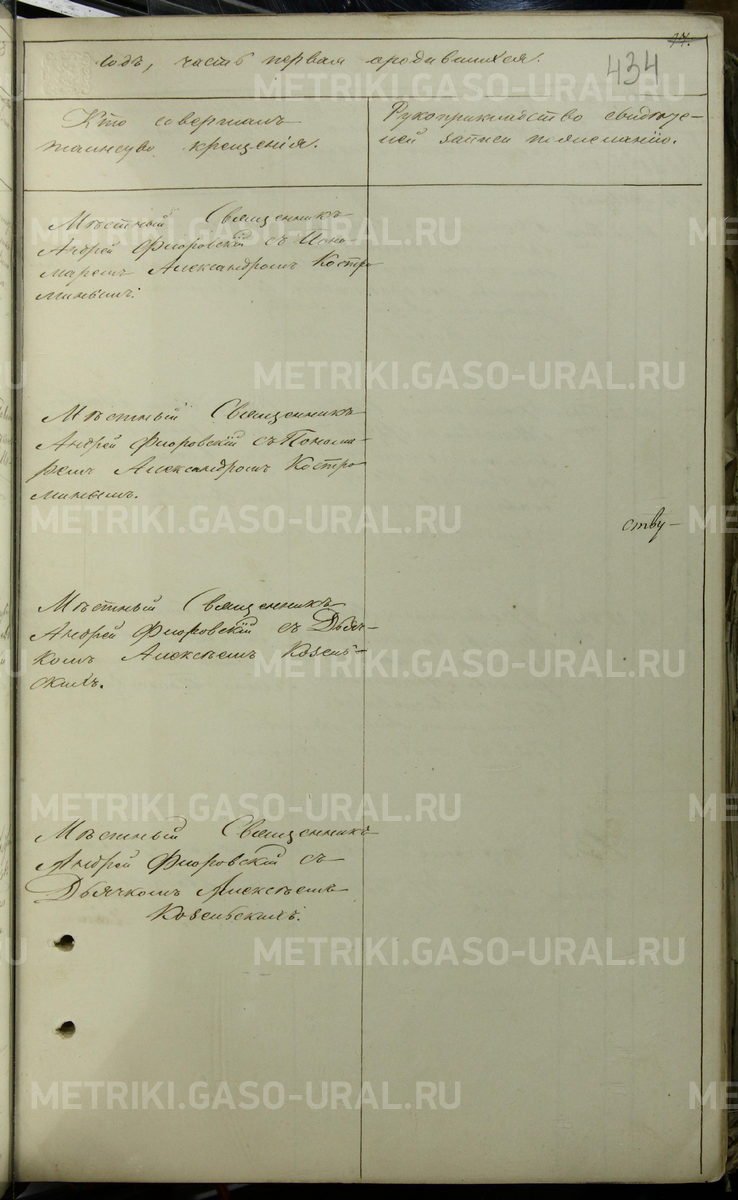 17.
434
годъ, часть первая о родившихся.
Кто совершалъ
таинство крещенія.
Рукоприкладство свидѣте-
лей записи по желанію.
Мѣстный Священникъ
Андрей Флоровскій съ Поно-
маремъ Александромъ Костро
минымъ.
Мѣстный Священникъ
Андрей Флоровскій съ Понома-
ремъ Александромъ Костро
минымъ.
ству-
Мѣстный Священникъ
Андрей Флоровскій съ Дьяч-
комъ Алексѣемъ Козель-
скихъ.
Мѣстный Священникъ
Андрей Флоровскій съ
Дьячкомъ Алексѣемъ
Козельскихъ.
METRIKI.GASO-URAL.RU